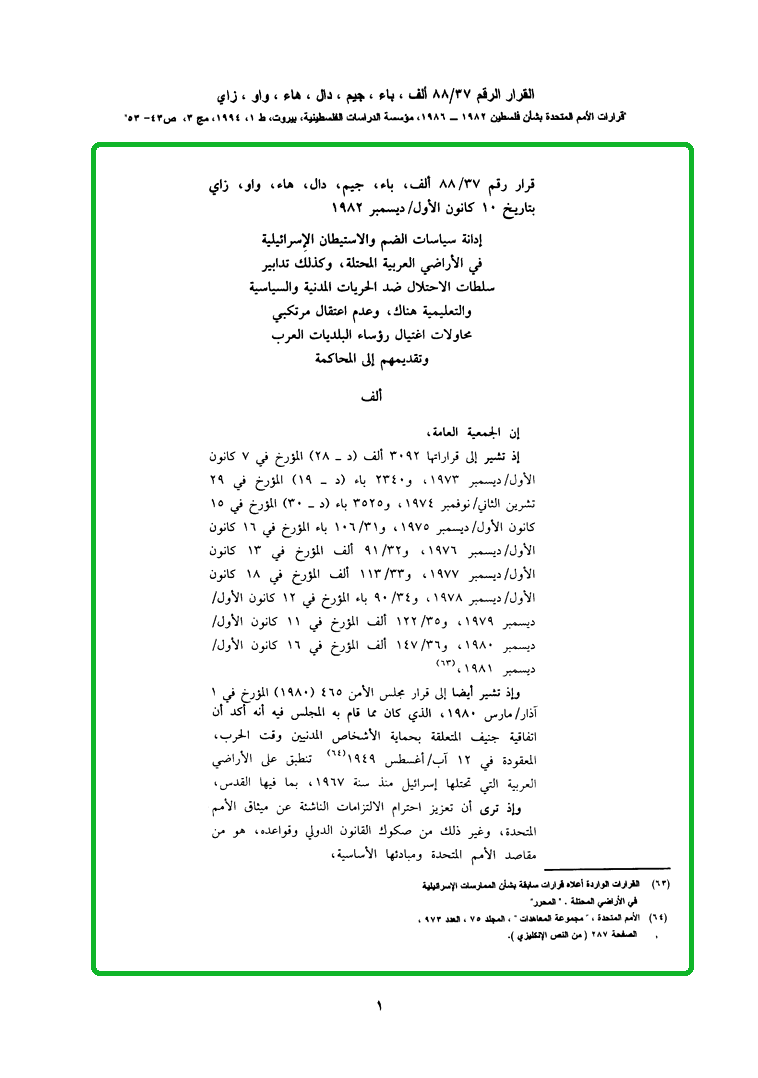 القرار الرقم ٨٨/٣٧ ألف ، باء ، جيم ، دال ، هاء ، واو ، زاي
"قرارات الأمم المتحدة بشأن فلسطين ١٩٨٢ ــ ١٩٨٦، مؤسسة الدراسات الفلسطينية، بيروت، ط ١، ١٩٩٤، مج ٣، ص٤٣- ٥٣"
قرار رقم ٨٨/٣٧ ألف، باء، جيم، دال، هاء، واو، زاي
بتاريخ ١٠ كانون الأول/ديسمبر ١٩٨٢
إدانة سياسات الضم والاستيطان الإسرائيلية
في الأراضي العربية المحتلة، وكذلك تدابير
سلطات الاحتلال ضد الحريات المدنية والسياسية
والتعليمية هناك، وعدم اعتقال مرتكبي
محاولات اغتيال رؤساء البلديات العرب
وتقديمهم إلى المحاكمة
ألف
إن الجمعية العامة،
إذ تشير إلى قراراتها ٣٠٩٢ ألف (د ـ ٢٨) المؤرخ في ٧ كانون
الأول/ديسمبر ١٩٧٣، و٢٣٤٠ باء (د ـ ١٩) المؤرخ في ٢٩
تشرين الثاني/نوفمبر ١٩٧٤، و٣٥٢٥ باء (د ـ ٣٠) المؤرخ في ١٥
كانون الأول/ديسمبر ١٩٧٥، و١٠٦/٣١ باء المؤرخ في ١٦ كانون
الأول/ديسمبر ١٩٧٦، و٩١/٣٢ ألف المؤرخ في ١٣ كانون
الأول/ديسمبر ١٩٧٧، و١١٣/٣٣ ألف المؤرخ في ١٨ كانون
الأول/ديسمبر ١٩٧٨، و٩٠/٣٤ باء المؤرخ في ١٢ كانون الأول/
ديسمبر ١٩٧٩، و١٢٢/٣٥ ألف المؤرخ في ١١ كانون الأول/
ديسمبر ١٩٨٠، و١٤٧/٣٦ ألف المؤرخ في ١٦ كانون الأول/
ديسمبر ١٩٨١،(٦٣)
وإذ تشير أيضا إلى قرار مجلس الأمن ٤٦٥ (١٩٨٠) المؤرخ في ١
آذار/مارس ١٩٨٠، الذي كان مما قام به المجلس فيه أنه أكد أن
اتفاقية جنيف المتعلقة بحماية الأشخاص المدنيين وقت الحرب،
المعقودة في ١٢ آب/أغسطس ١٩٤٩(٦٤) تنطبق على الأراضي
العربية التي تحتلها إسرائيل منذ سنة ١٩٦٧، بما فيها القدس،
وإذ ترى أن تعزيز احترام الالتزامات الناشئة عن ميثاق الأمم
المتحدة، وغير ذلك من صكوك القانون الدولي وقواعده، هو من
مقاصد الأمم المتحدة ومبادئها الأساسية،
(٦٣) القرارات الواردة أعلاه قرارات سابقة بشأن الممارسات الإسرائيلية
في الأراضي المحتلة . " المحرر"
(٦٤) الأمم المتحدة ، " مجموعة المعاهدات " ، المجلد ٧٥ ، العدد ٩٧٣ ،
الصفحة ٢٨٧ ( من النص الإنكليزي ).
١